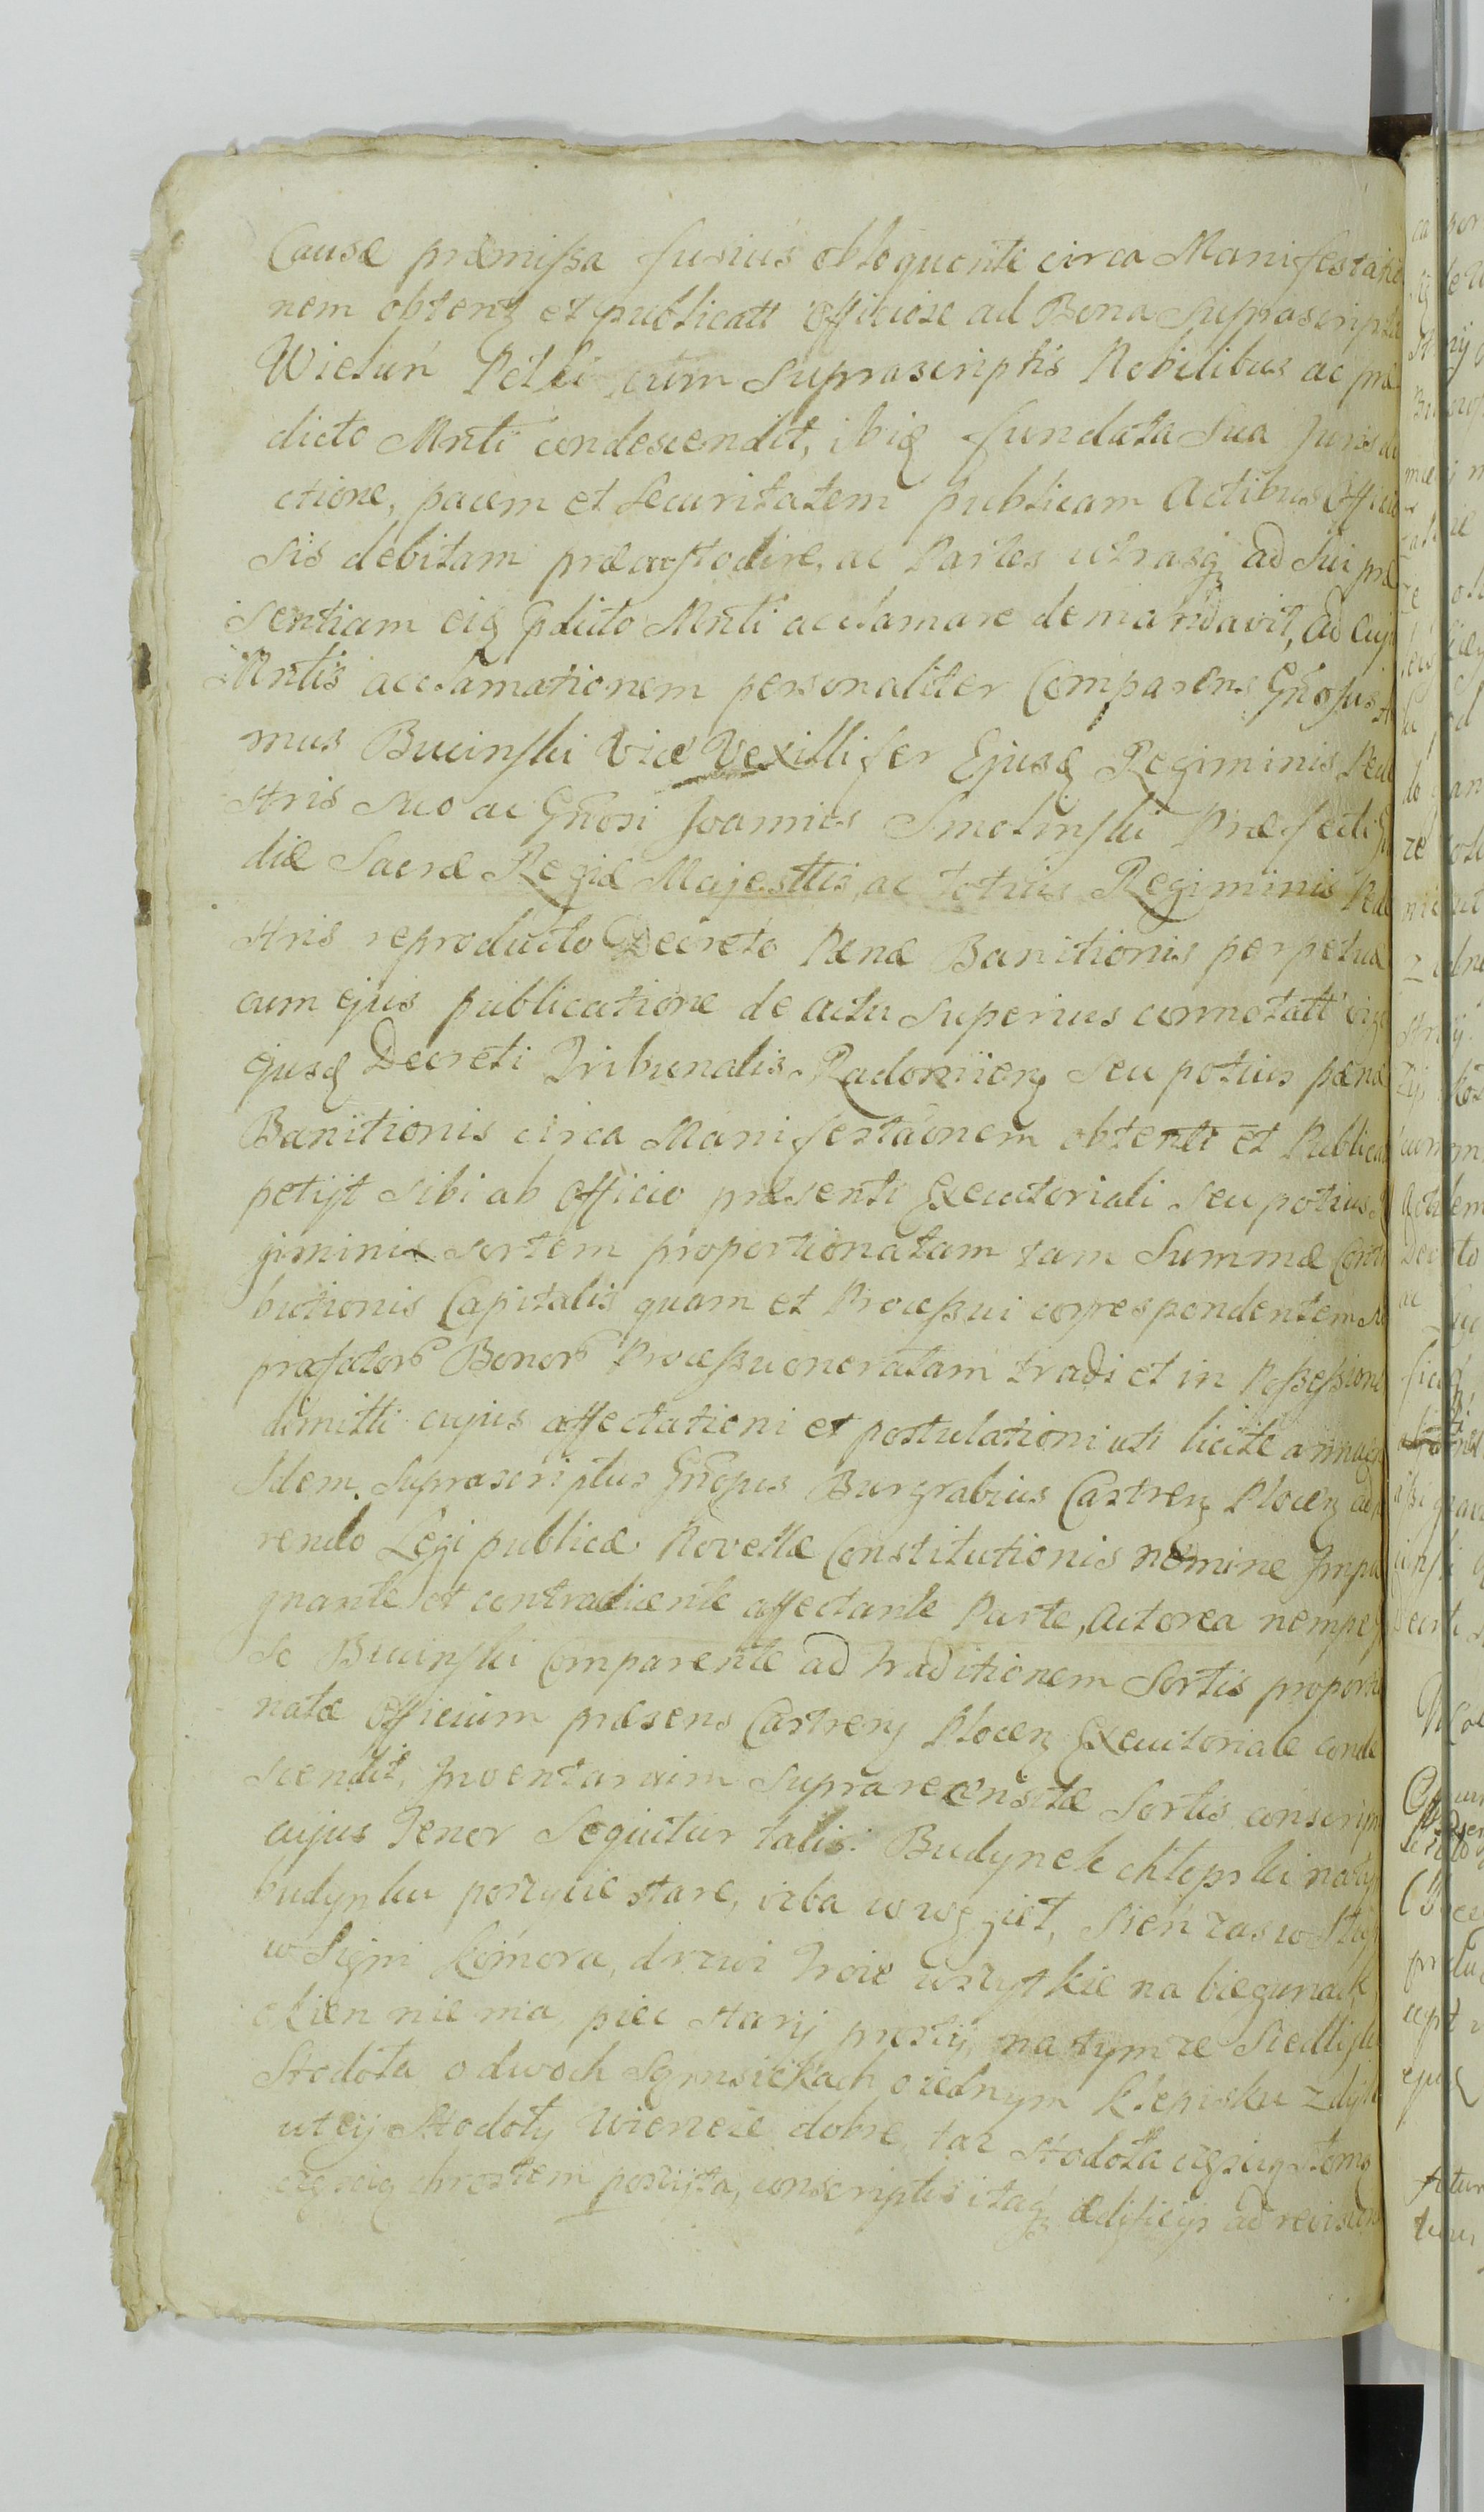 Causæ præmissa fusius obloquente circa Manifestatio
nem obtenꝫ et publicatt officiose ad Bona Suprascripta
Wieluń Pelki cum Suprascriptis Nobilibus ac præ
dicto Mnti condescendit, ibiq fundata Sua Jurisdi
ctione, pacem et Securitatem publicam Actibus Officio
sis debitam præcustodire, ac Partes utrasqꝫ ad Sui præ
sentiam eiq pdicto Mnti acclamare demandavit, ad cuj
Mntis acclamationem personaliter Comparens Gnosus
mus Bucinski Vice Vexillifer Ejusq Regiminis Pede
stris suo ac Gnosi Joannis Smolinski Præfecti
diæ Sacræ Regiæ Majesttis, ac totius Regiminis Pede
stris reproducto Decreto Pænæ Banitionis perpetuæ
cum ejus publicatione de actu Superius connotatt
ejusq Decreti Tribunalis Radomienꝫ Seu potius pænæ
Banitionis circa Manifestaonem obtentt et Publica
petijt sibi ab officio præsenti Executoriali seu potius
giminis sortem proportionatam tam Summæ Contri
butionis Capitalis quam et Processui correspondentem
præfator Bonor Processu oneratam tradi et in Possessione
dimitti cujus affectationi et postulationi uti licite annuen
Idem Suprascriptus Gnosus Burgrabius Castrenꝫ Plocenꝫ
rendo Legi publicæ Novellæ Constitutionis nemine Impu
gnante et contradicente affectante Parte, Actorea nempe
se Bucinski comparente ad traditionem Sortis proportio
natæ officium præsens Castrenꝫ Plocenꝫ Executoriale conde
scendit, Inventarium Supra recensitæ Sortis conscrip
cujus Tenor Sequitur talis. Budynek chłopski na tÿ
budynku poszycie stare, izba w węgieł, sień zas w słup
w Sięni komora, drzwi troie wszytkie na biegunach
okien nie ma, piec starÿ prostÿ, na tymze Siedlisku
Stodoła o dwoch Sąmsiekach o iednym klepisku
u teÿ Stodołÿ wierzeie dobre, taz stodoła częscią słomą
częscią chrostem poszÿta, conscriptis itaqꝫ ædificijs ad